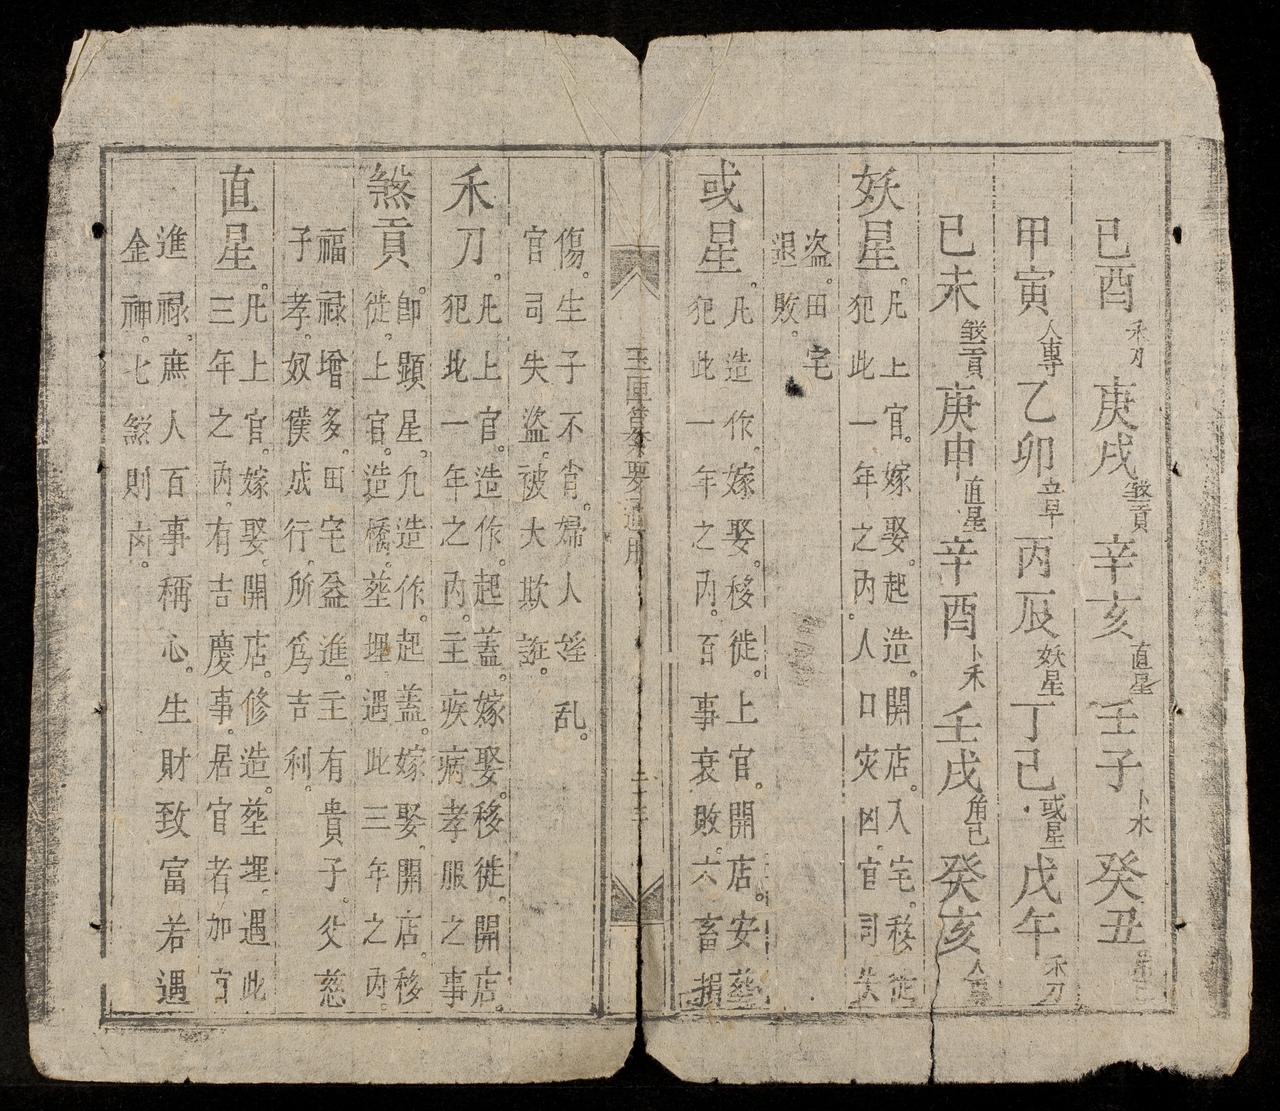 己酉禾刀庚戌煞貢辛亥直星壬子卜木癸丑
甲寅人專乙卯立早丙辰妖星丁巳或星戊午禾刀
己未煞貢庚申直星辛酉卜木壬戌角己癸亥人專
妖星。凡上官。嫁娶。起造。開店。入宅。移徙
犯此一年之內。人口灾凶。官司失
盗。田宅
退敗。
或星。凡造作。嫁娶。移徙。上官。開店。安葬
犯此一年之內。百事衰敗。六畜損
玉匣皆祭要通用
二十三
傷。生子不肖。婦人淫乱。
官司失盜。被大欺誑。
禾刀。凡上官。造作。起蓋。嫁娶。移徙。開店。
犯此一年之內。主疾病孝服之事
煞貢。即顯星。凡造作。起蓋。嫁娶。開店。移
徙。上官。造橋。葬埋遇此三年之內。
福祿增多。田宅益進。主有貴子。父慈
子孝。奴僕成行。所為吉利。
直星。凡上官。嫁娶。開店。修造。葬埋。遇此
三年之內。有吉慶事。居官者加官
進祿。庶人百事稱心。生財致富若遇
金神。七煞則凶。